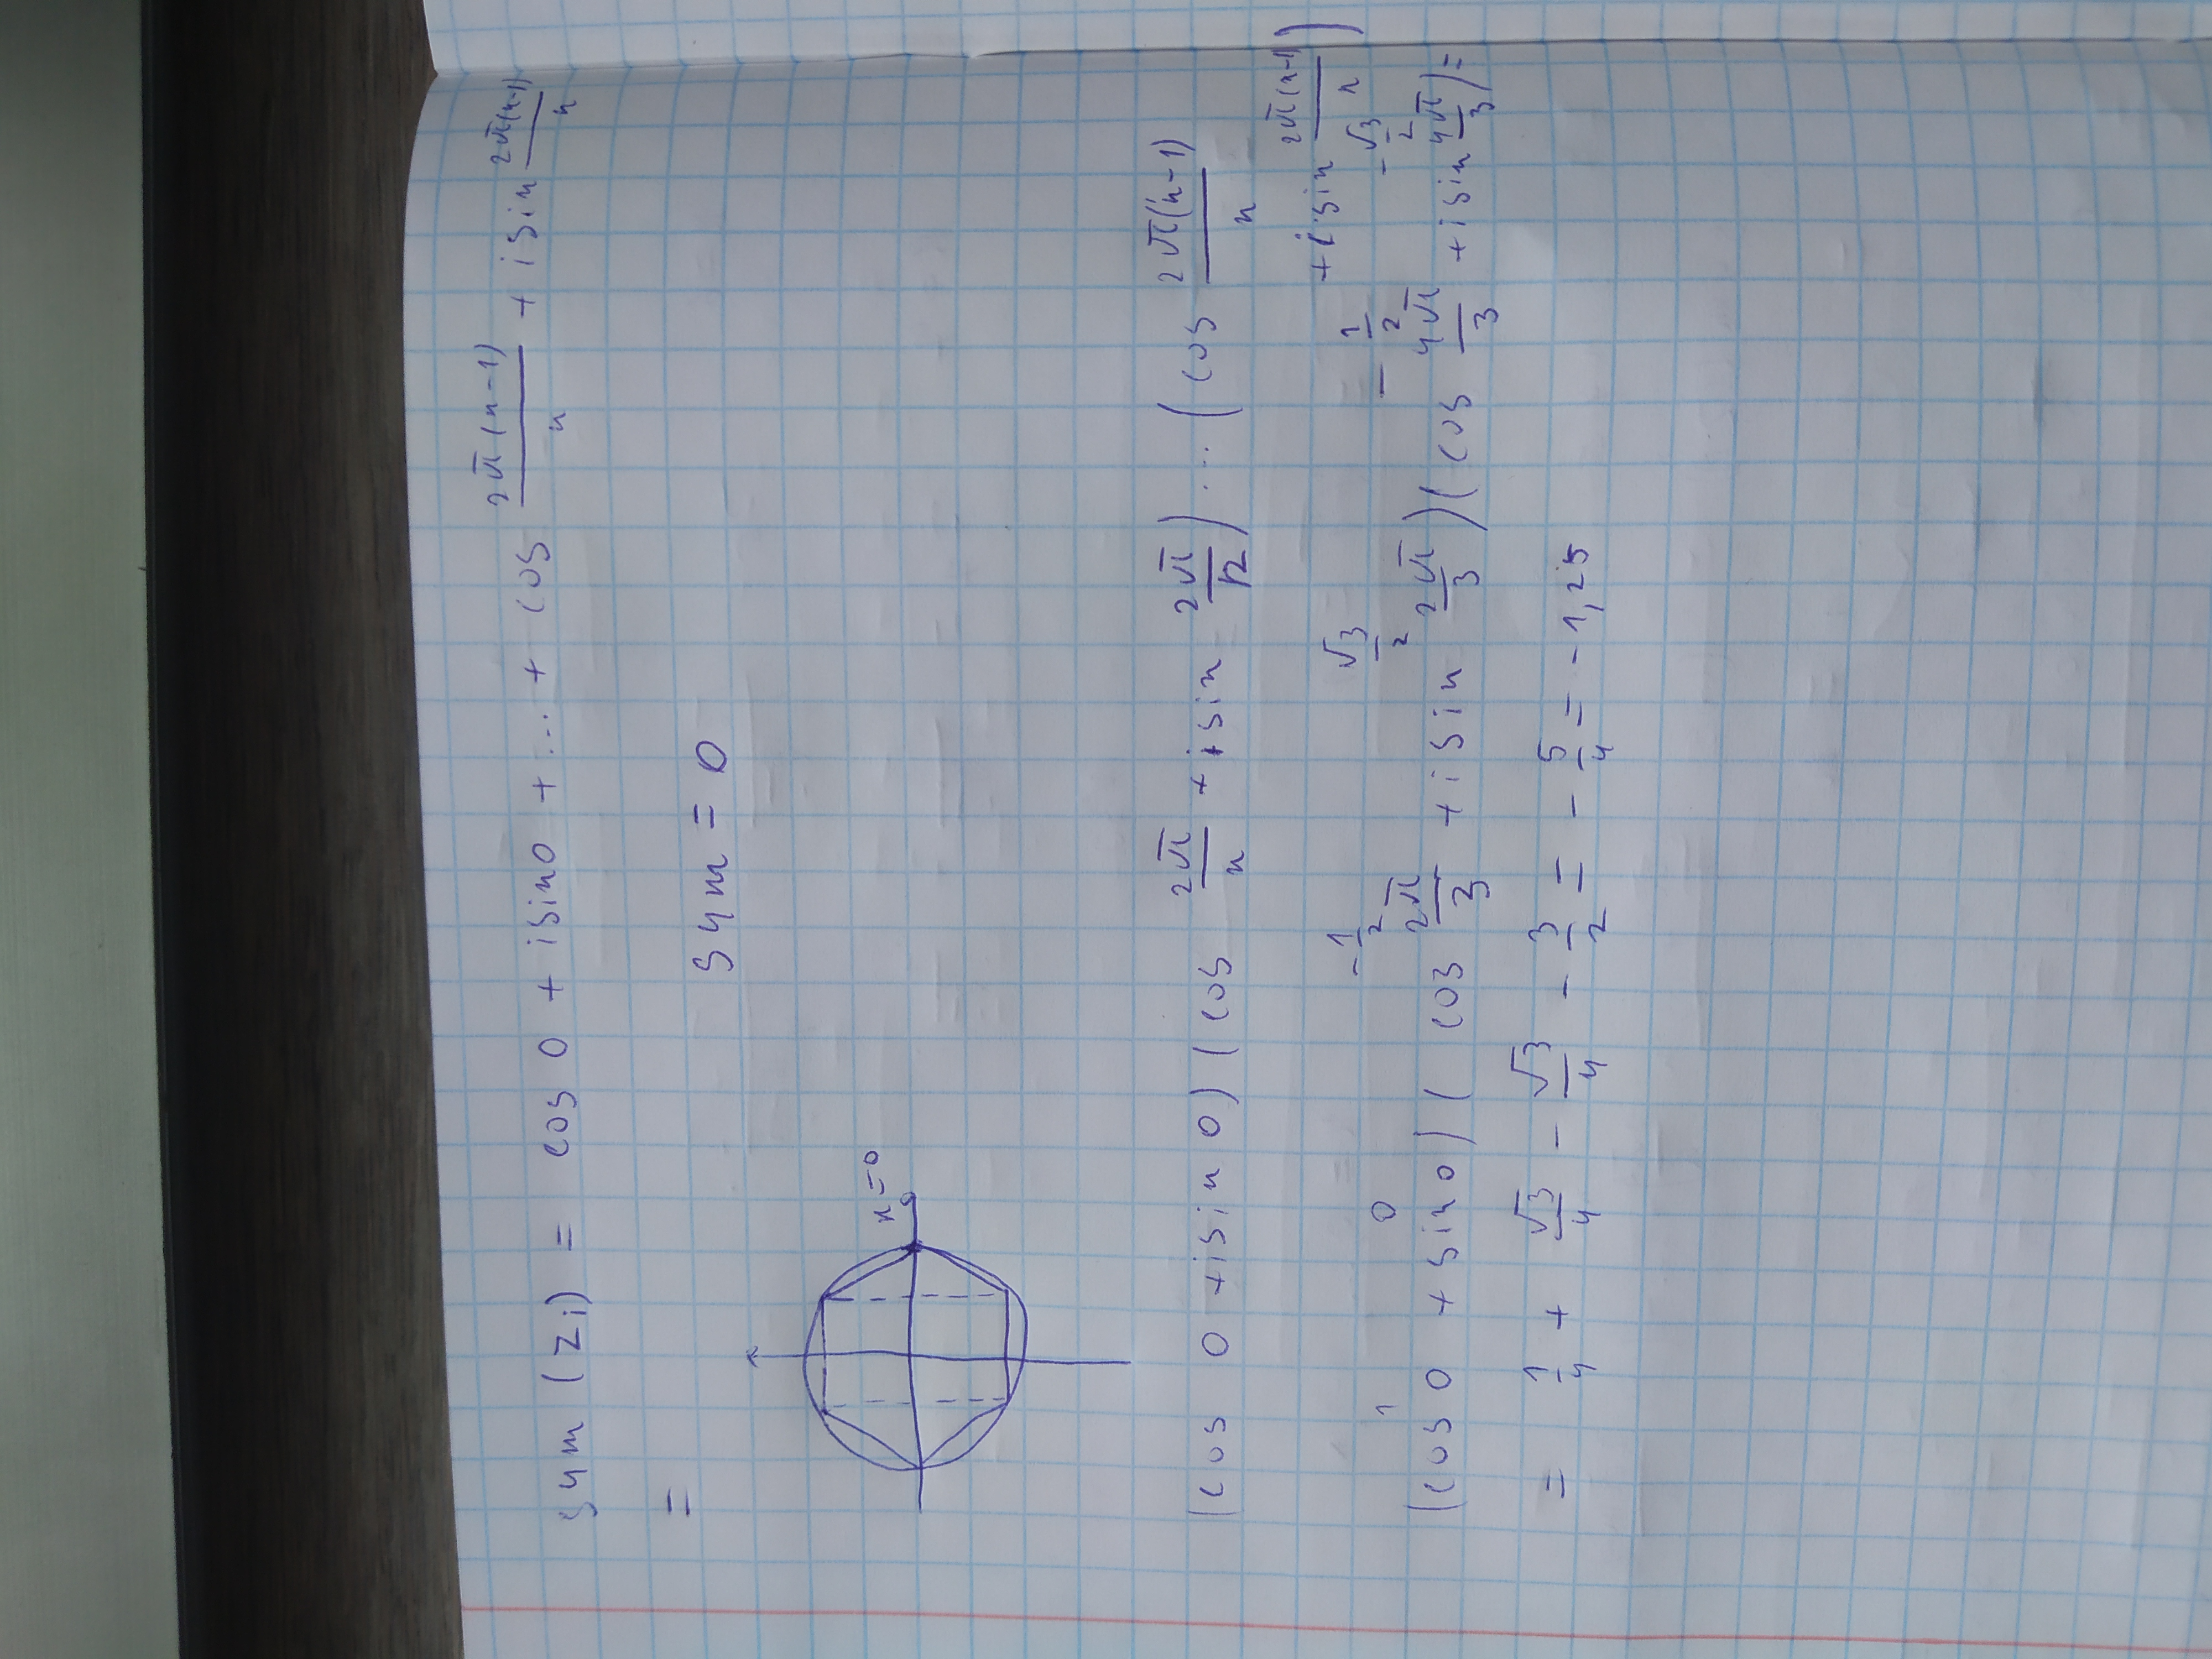 sum (z_i) = cos 0 + i sin 0 + ... + cos 2π(n-1)/n + i sin 2π(n-1)/n
=
sum = 0
n=0
(cos 0 + i sin 0) (cos 2π/n + i sin 2π/n) ... (cos 2π(n-1)/n
+ i sin 2π(n-1)/n)
1 0 -1/2 √3/2 -1/2 -√3/2
(cos 0 + sin 0) (cos 2π/3 + i sin 2π/3) (cos 4π/3 + i sin 4π/3) =
= 1/4 + √3/4 - √3/4 - 3/2 = -5/4 = -1,25